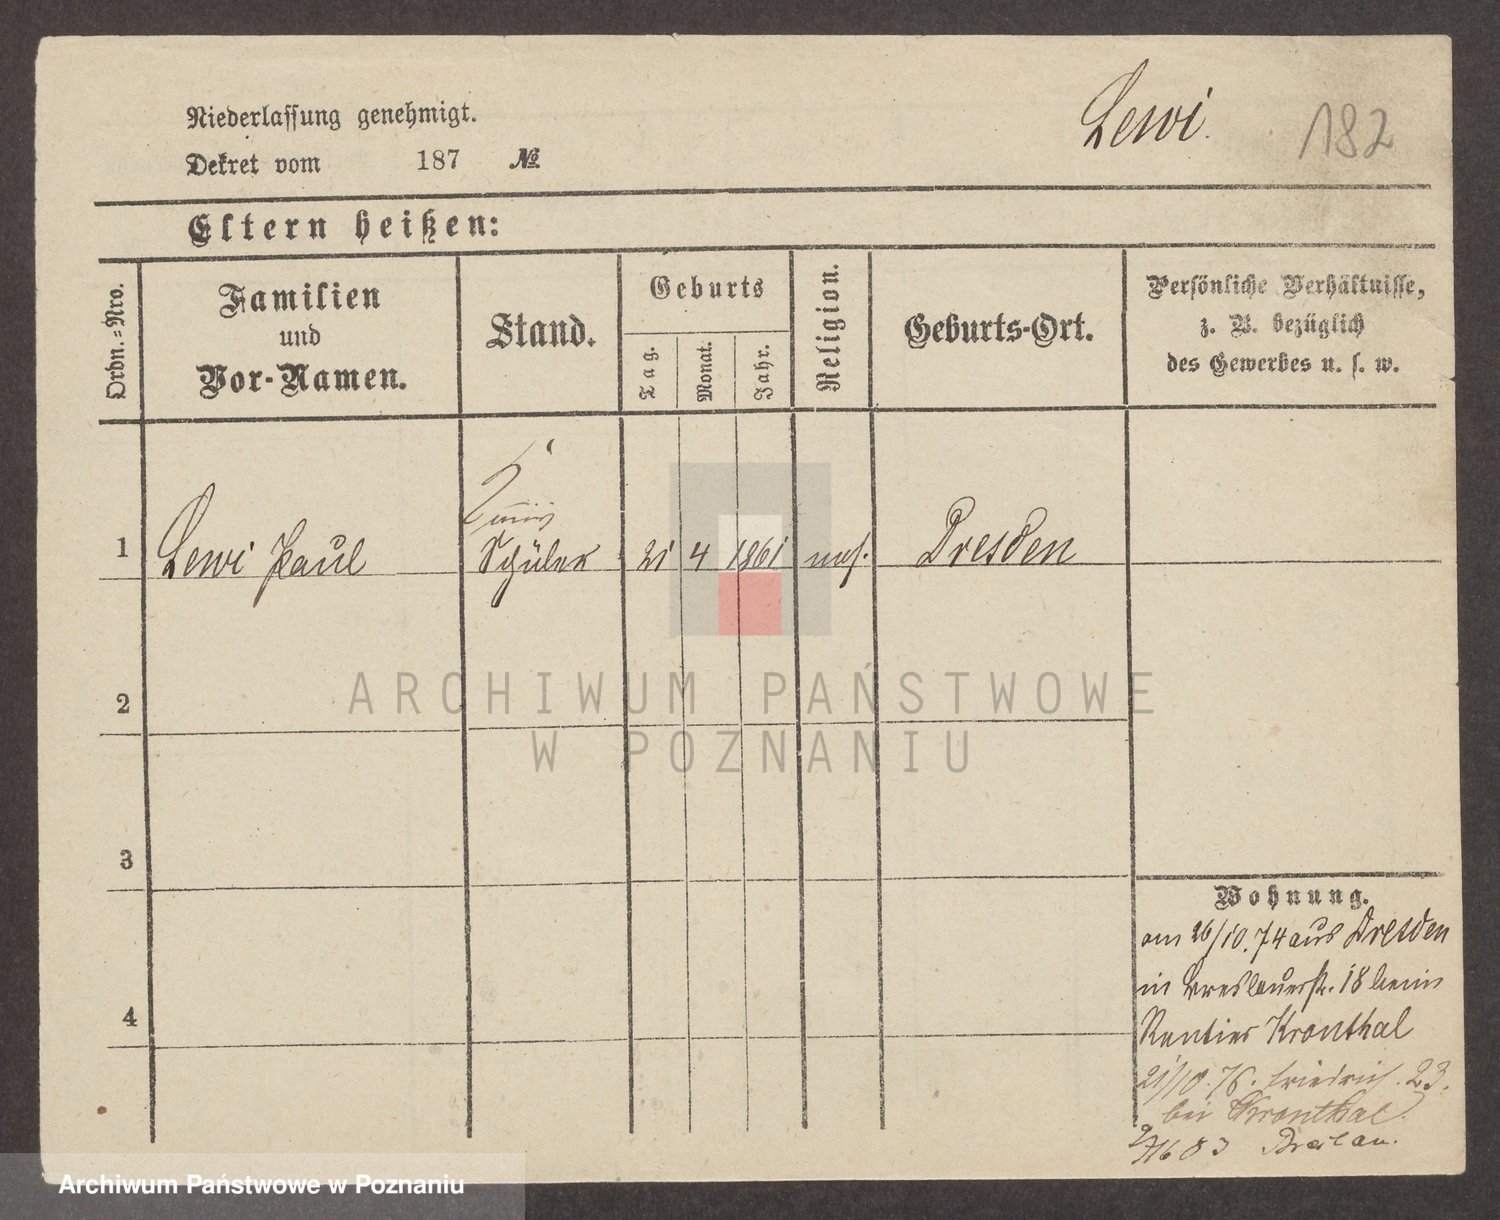 Niederlassung genehmigt.
Lewi.
182
Dekret vom 187 №
Eltern heißen:
Ordn.-Nro.
Familien
und
Vor-Namen.
Stand.
Geburts
Tag.
Monat.
Jahr.
Religion.
Geburts-Ort.
Persönliche Verhältnisse,
z. B. bezüglich
des Gewerbes u. s. w.
1 Lewi Paul Schüler 21 4 1861 mos. Dresden
2
3
4
Wohnung.
am 26/10.74 aus Dresden
in Breslauerstr. 18 beim
Rentier Kronthal
21/10.76. Friedrich. 23.
bei Kronthal
83 Breslau.
ARCHIWUM PAŃSTWOWE
W POZNANIU
Archiwum Państwowe w Poznaniu